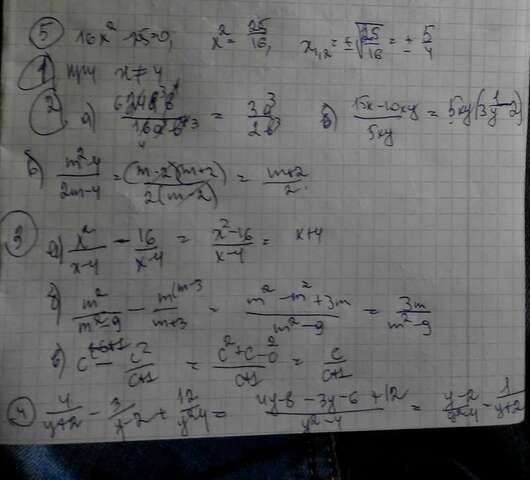 ⑤ 16x² - 25 = 0, x² = 25/16, x₁,₂ = ±√(25/16) = ± 5/4
① при x ≠ 4
② а) = 3a³/2b³ в) (15x - 10xy)/5xy =
б) (m² - 4)/(2m - 4) = (m-2)(m+2)/2(m-2) = (m+2)/2.
③ а) x²/(x-4) - 16/(x-4) = (x² - 16)/(x-4) = x+4
б) m²/(m² - 9) - m(m-3/(m+3) = (m² - m² + 3m)/(m² - 9) = 3m/(m² - 9)
в) c - c²/(c+1) = (c² + c - c²)/(c+1) = c/(c+1)
④ 4/(y+2) - 3/(y-2) + 12/(y² - 4) = (4y - 8 - 3y - 6 + 12)/(y² - 4) = (y-2)/(y² - 4) - 1/(y+2)